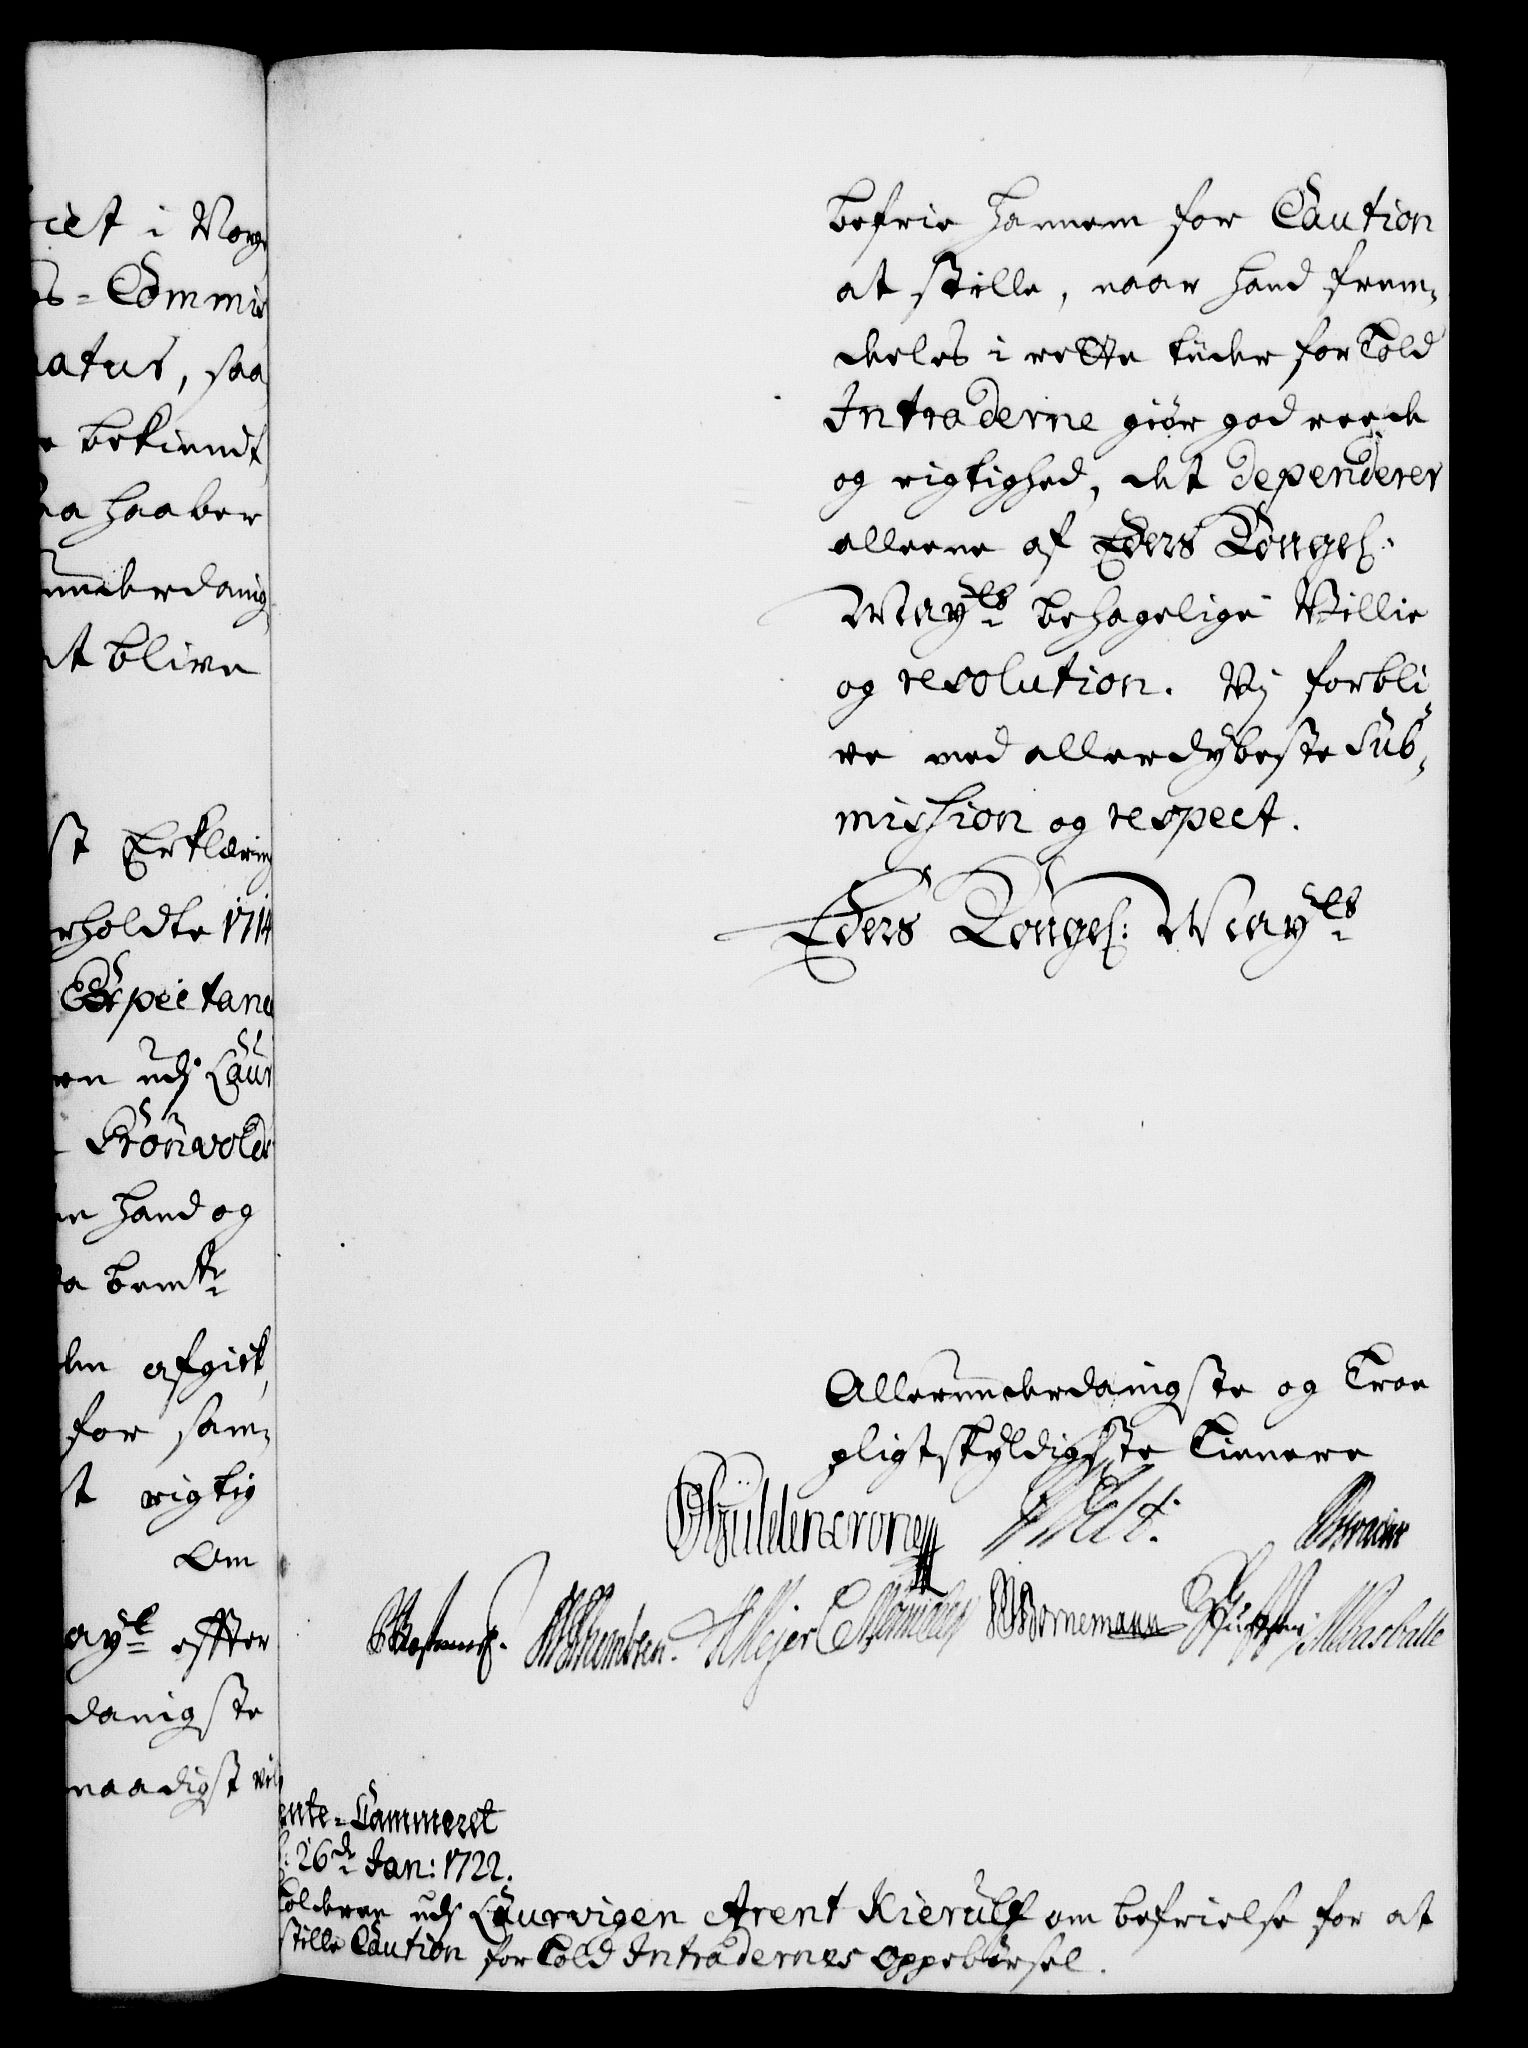 ciet i Norge
s-Commis
natus, saa
bekiendt,
aa haaber
underdanig
at blive
st Erklæring
rholdte 1714
Expectance
en udj Laur
Grönvolds
hand og
a bemte
den afgick,
for sam-
st rigtig
Om
aytt effter
danigste
naadigst vil
befrie hannem for Caution
at stille, naar hand frem-
deeles i rette tüder for Told
Intraderne giör god reede
og rigtighed, det dependerer
alleene af Eders Kongel:
Mayts behagelige Villie
og resolution. Vj forbli-
ve med allerdybeste Sub-
mission og respect.
Eders Kongel: Mayts
Allerunderdanigste og Troe
pligtskyldigste Tienere
Güldencrone
Thombsen. Meyer Bornemann
ente-Cammeret
26de Jan: 1722.
Tolderen udj Laurvigen Arent Kierulf om befrielse for at
stille Caution for Told Intradernes oppebørsel.